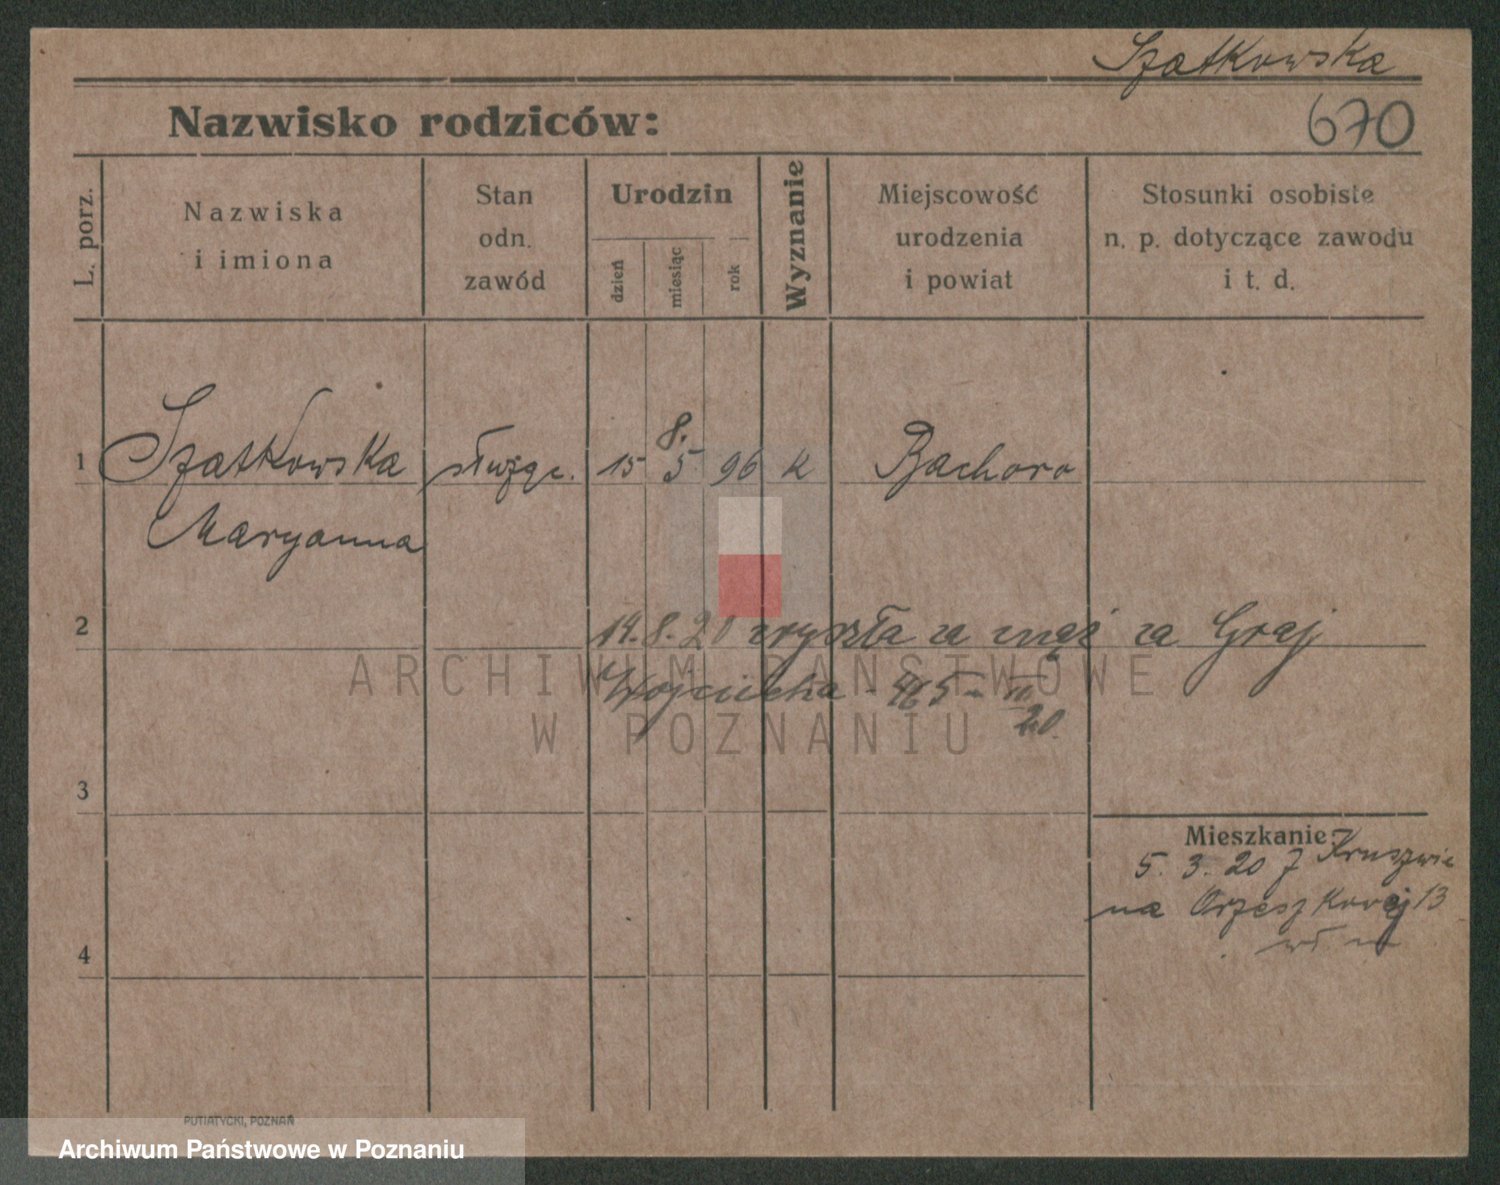 Szatkowska
Nazwisko rodziców:
670
L. porz.
Nazwiska
i imiona
Stan
odn.
zawód
Urodzin
dzień
miesiąc
rok
Wyznanie
Miejscowość
urodzenia
i powiat
Stosunki osobiste
n. p. dotyczące zawodu
i t. d.
8.
1 Szatkowska służąc. 15 5 96 k Bachora
Maryanna
2 14.8.20 wyszła za mąż za Graj
Wojciecha - 465 - III
20.
3
Mieszkanie:
5. 3. 20 z Kruszwic
na Orzeszkowej 13
4
PUTIATYCKI, POZNAŃ
ARCHIWUM PAŃSTWOWE
W POZNANIU
Archiwum Państwowe w Poznaniu